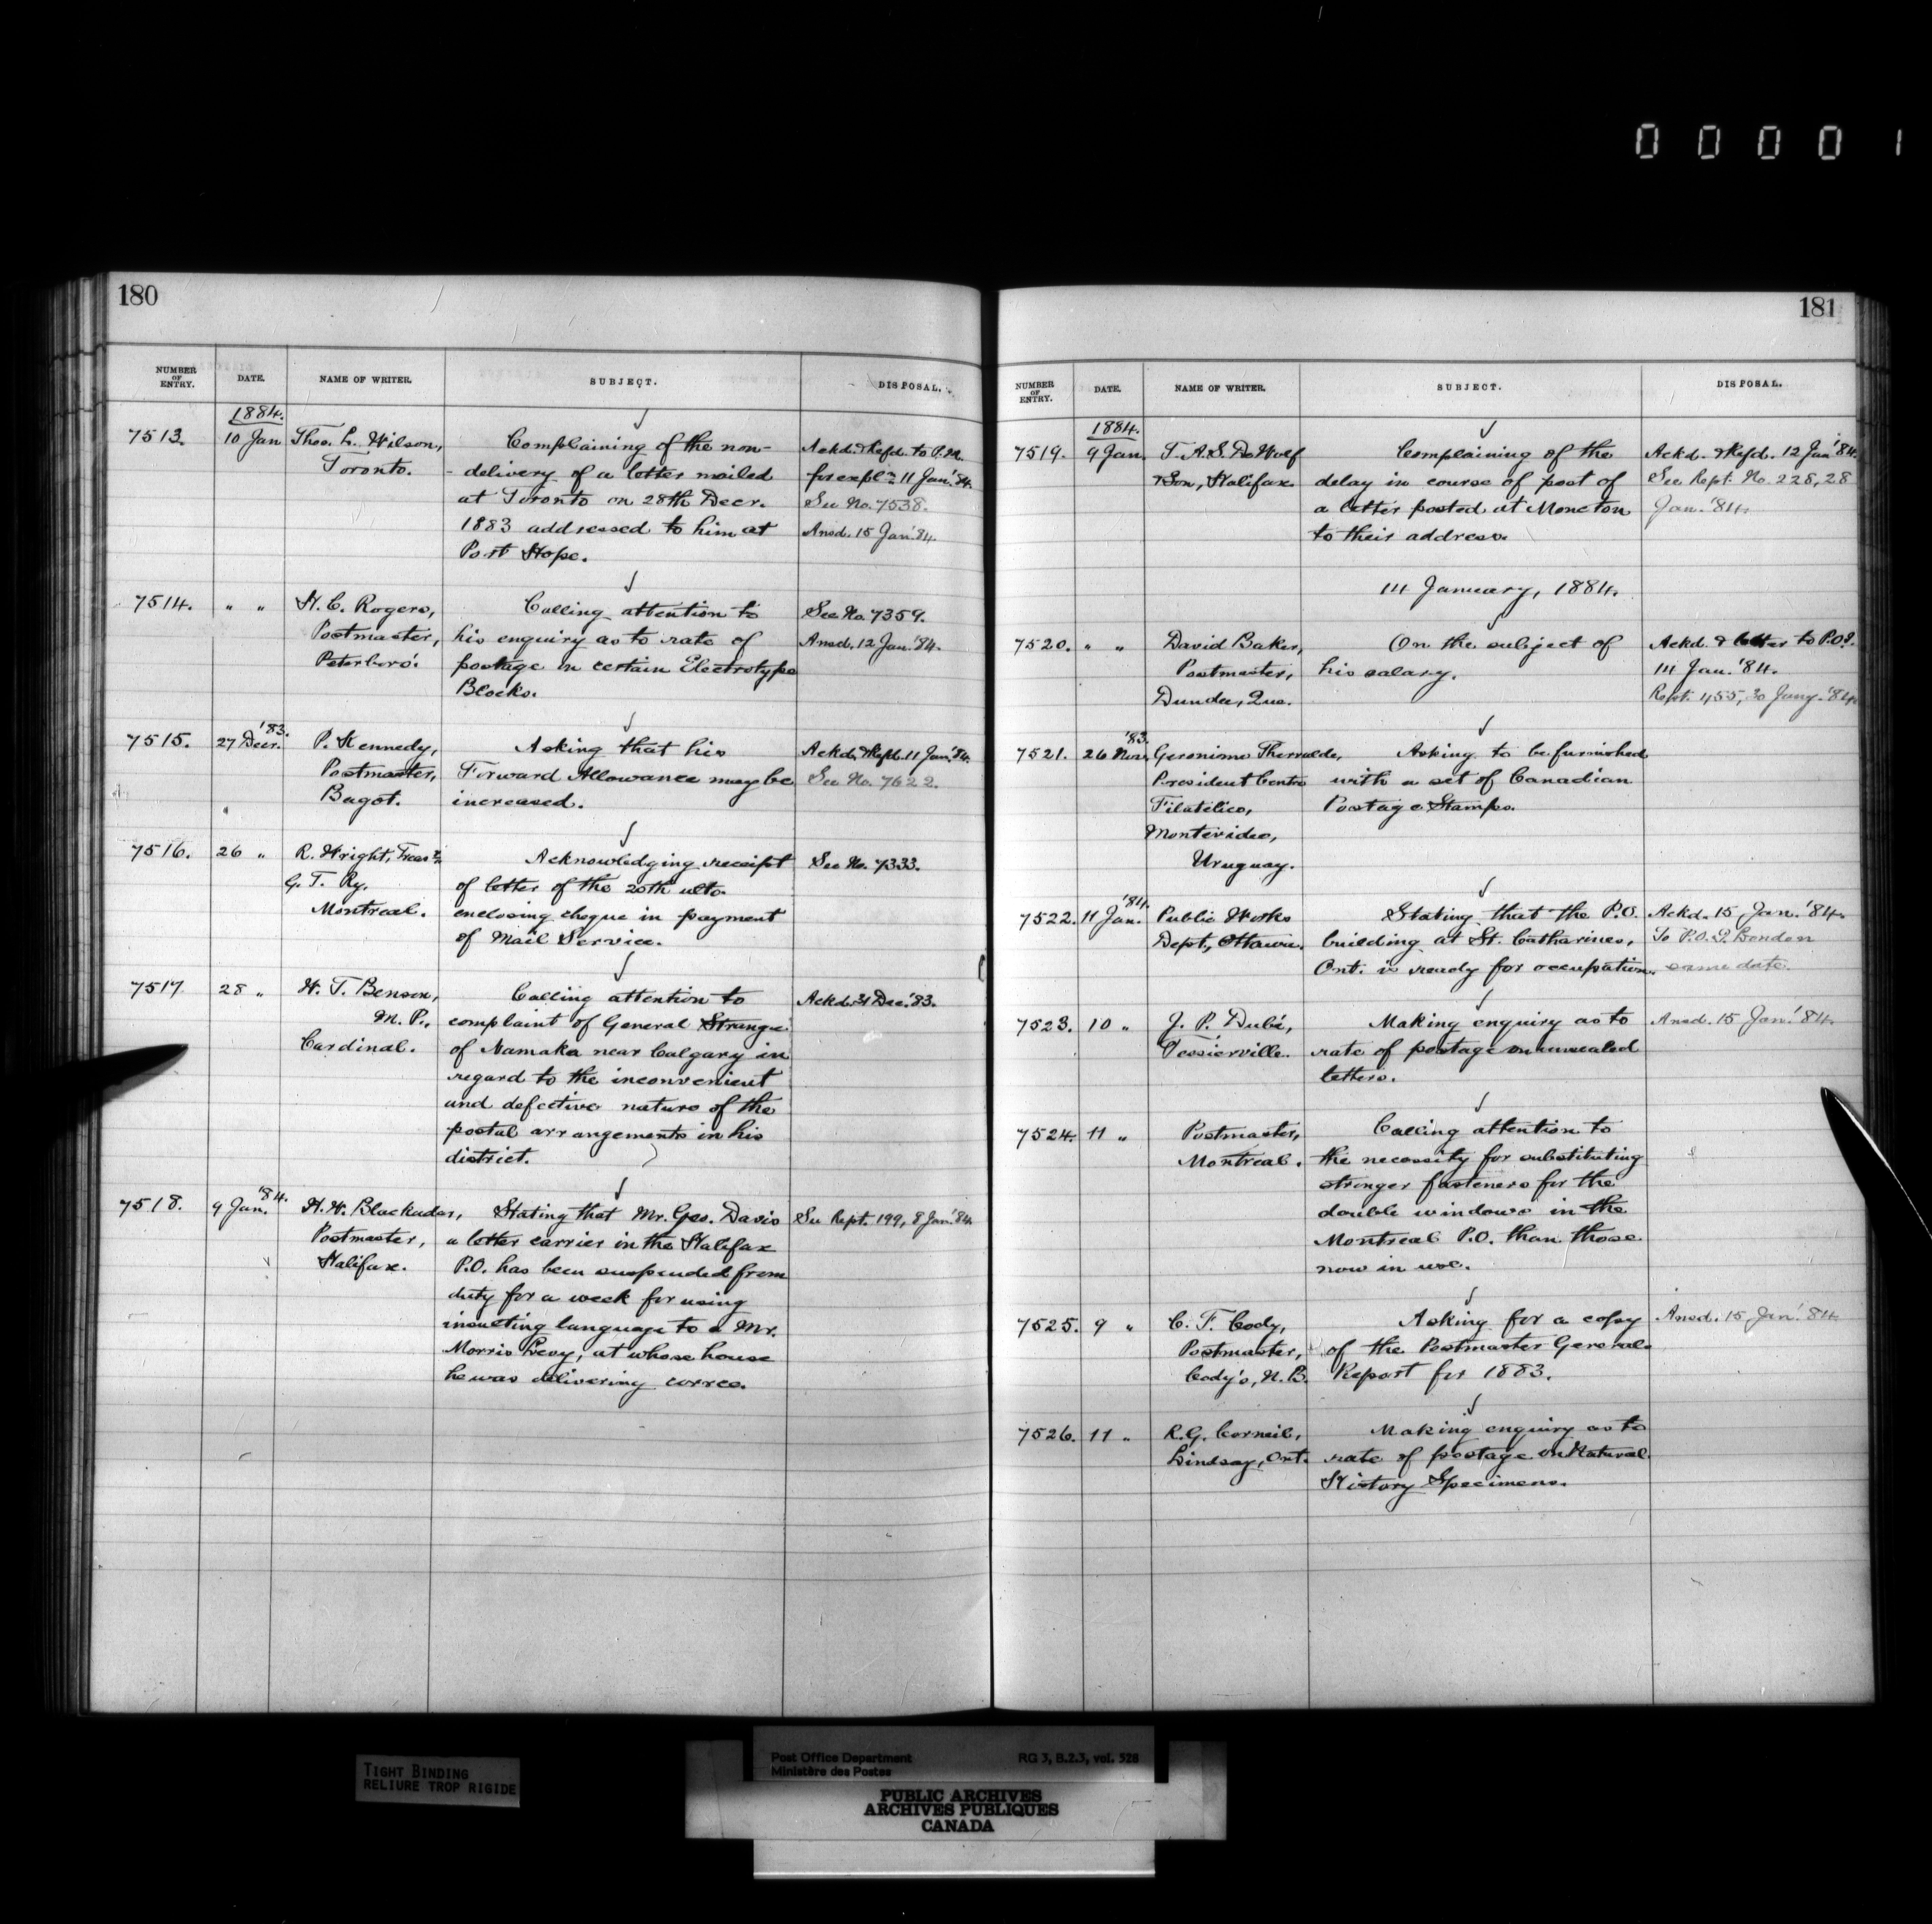 00001
180
NUMBER OF ENTRY. DATE. NAME OF WRITER. SUBJECT. DISPOSAL.
1884.
7513. 10 Jan Thos. L. Wilson, Complaining of the non- Ackd. & Refd. to P.M.
Toronto. - delivery of a letter mailed for expln 11 Jan. '84.
at Toronto on 28th Decr. See No. 7538.
1883 addressed to him at Ansd. 15 Jan. '84.
Port Hope.
7514. " " H. C. Rogers, Calling attention to See No. 7359.
Postmaster, his enquiry as to rate of Ansd. 12 Jan. '84.
Peterboro'. postage on certain Electrotype
Blocks.
7515. 27 Decr. '83. P. Kennedy, Asking that his Ackd. & Refd. 11 Jan. '84.
Postmaster, Forward Allowance may be See No. 7622.
Bagot. increased.
7516. 26 " R. Wright, Treasr. Acknowledging receipt See No. 7333.
G. T. Ry. of letter of the 20th ulto.
Montreal. enclosing cheque in payment
of Mail Service.
7517 28 " W. T. Benson, Calling attention to Ackd. 31 Dec. '83.
M. P., complaint of General Strange
Cardinal. of Namaka near Calgary in
regard to the inconvenient
and defective nature of the
postal arrangements in his
district.
7518. 9 Jan. '84. H. W. Blackadar, Stating that Mr. Geo. Davis See Rept. 199, 8 Jan. '84.
Postmaster, a letter carrier in the Halifax
Halifax. P.O. has been suspended from
duty for a week for using
insulting language to a Mr.
Morris Levy, at whose house
he was delivering corres.
181
NUMBER OF ENTRY. DATE. NAME OF WRITER. SUBJECT. DISPOSAL.
1884.
7519. 9 Jan. T. A. S. DeWolf Complaining of the Ackd. & Refd. 12 Jan. '84.
& Son, Halifax delay in course of post of See Rept. No. 228, 28
a letter posted at Moncton Jan. '84.
to their address.
14 January, 1884.
7520. " " David Baker, On the subject of Ackd. & letter to P.O.
Postmaster, his salary. 14 Jan. '84.
Dundee, Que. Rept. 455, 30 Jany. '84.
7521. 26 Nov. '83. Geronimo Asking to be furnished
President Centro with a set of Canadian
Filatelico, Postage Stamps.
Montevideo,
Uruguay.
7522. 11 Jan. '84. Public Works Stating that the P.O. Ackd. 15 Jan. '84.
Dept., Ottawa. building at St. Catharines, To P.O.I. London
Ont. is ready for occupation. same date.
7523. 10 " J. P. Dubé, Making enquiry as to Ansd. 15 Jan. '84.
Tessierville. rate of postage on unsealed
letters.
7524. 11 " Postmaster, Calling attention to
Montreal. the necessity for substituting
stronger fasteners for the
double windows in the
Montreal P.O. than those
now in use.
7525. 9 " C. F. Cody, Asking for a copy Ansd. 15 Jan. '84.
Postmaster, of the Postmaster Generals
Cody's, N.B. Report for 1883.
7526. 11 " R.G. Corneil, Making enquiry as to
Lindsay, Ont. rate of postage on Natural
History Specimens.
TIGHT BINDING
RELIURE TROP RIGIDE
Post Office Department RG 3, B.2.3, vol. 528
Ministère des Postes
PUBLIC ARCHIVES
ARCHIVES PUBLIQUES
CANADA